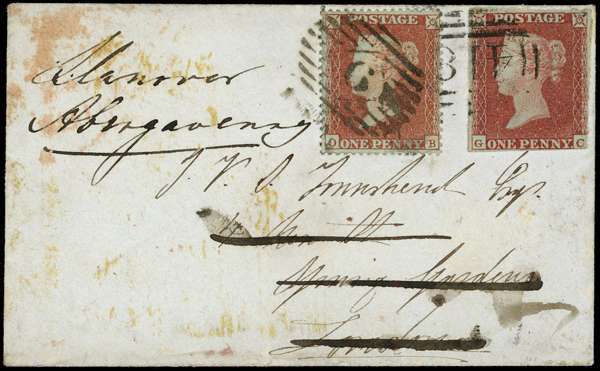 POSTAGE
ONE PENNY B
POSTAGE
G ONE PENNY C
Llanover
Abergavenny
J. V. S. Townshend Esq.
Spring Gardens
London